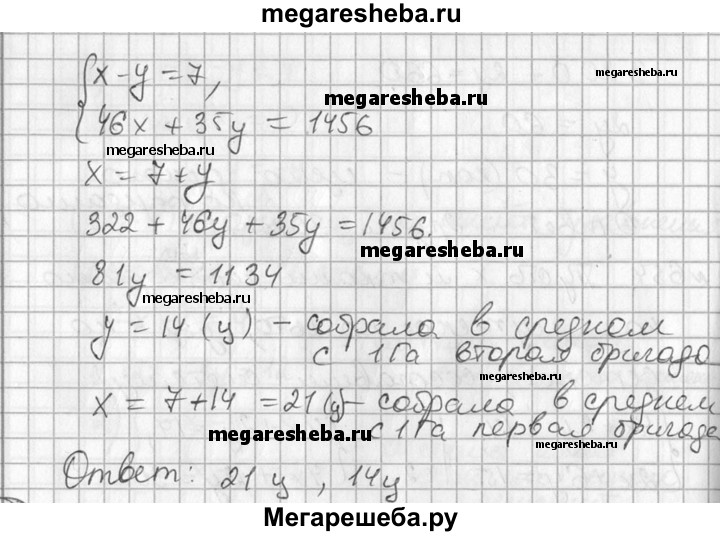 megaresheba.ru
x - y = 7,
megaresheba.ru
megaresheba.ru
46x + 35y = 1456
megaresheba.ru
x = 7 + y
322 + 46y + 35y = 1456.
megaresheba.ru
81y = 1134
megaresheba.ru
y = 14 (ц) - собрала в среднем
с 1 га вторая бригада
megaresheba.ru
x = 7 + 14 = 21 (ц) - собрала в среднем
с 1 га первая бригада
megaresheba.ru
megaresheba.ru
Ответ: 21 ц, 14 ц
Мегарешеба.ру